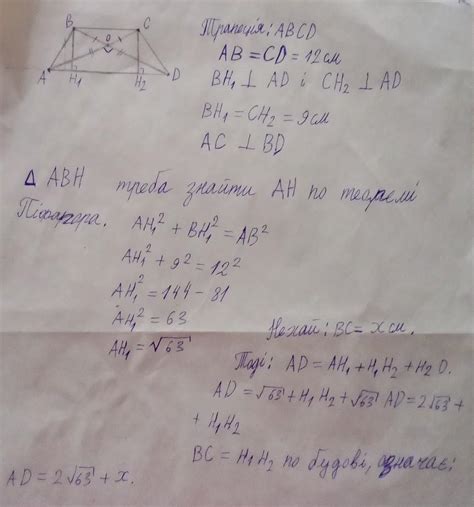 B C
O
A H₁ H₂ D
Трапеція: ABCD
AB = CD = 12 см
BH₁ ⊥ AD і CH₂ ⊥ AD
BH₁ = CH₂ = 9 см
AC ⊥ BD
Δ ABH треба знайти AH по теоремі
Піфагора.
AH₁² + BH₁² = AB²
AH₁² + 9² = 12²
AH₁² = 144 - 81
AH₁² = 63
AH₁ = √63
Нехай: BC = x см.
Тоді: AD = AH₁ + H₁H₂ + H₂D.
AD = √63 + H₁H₂ + √63 AD = 2√63 +
+ H₁H₂
BC = H₁H₂ по будові, означає:
AD = 2√63 + x.